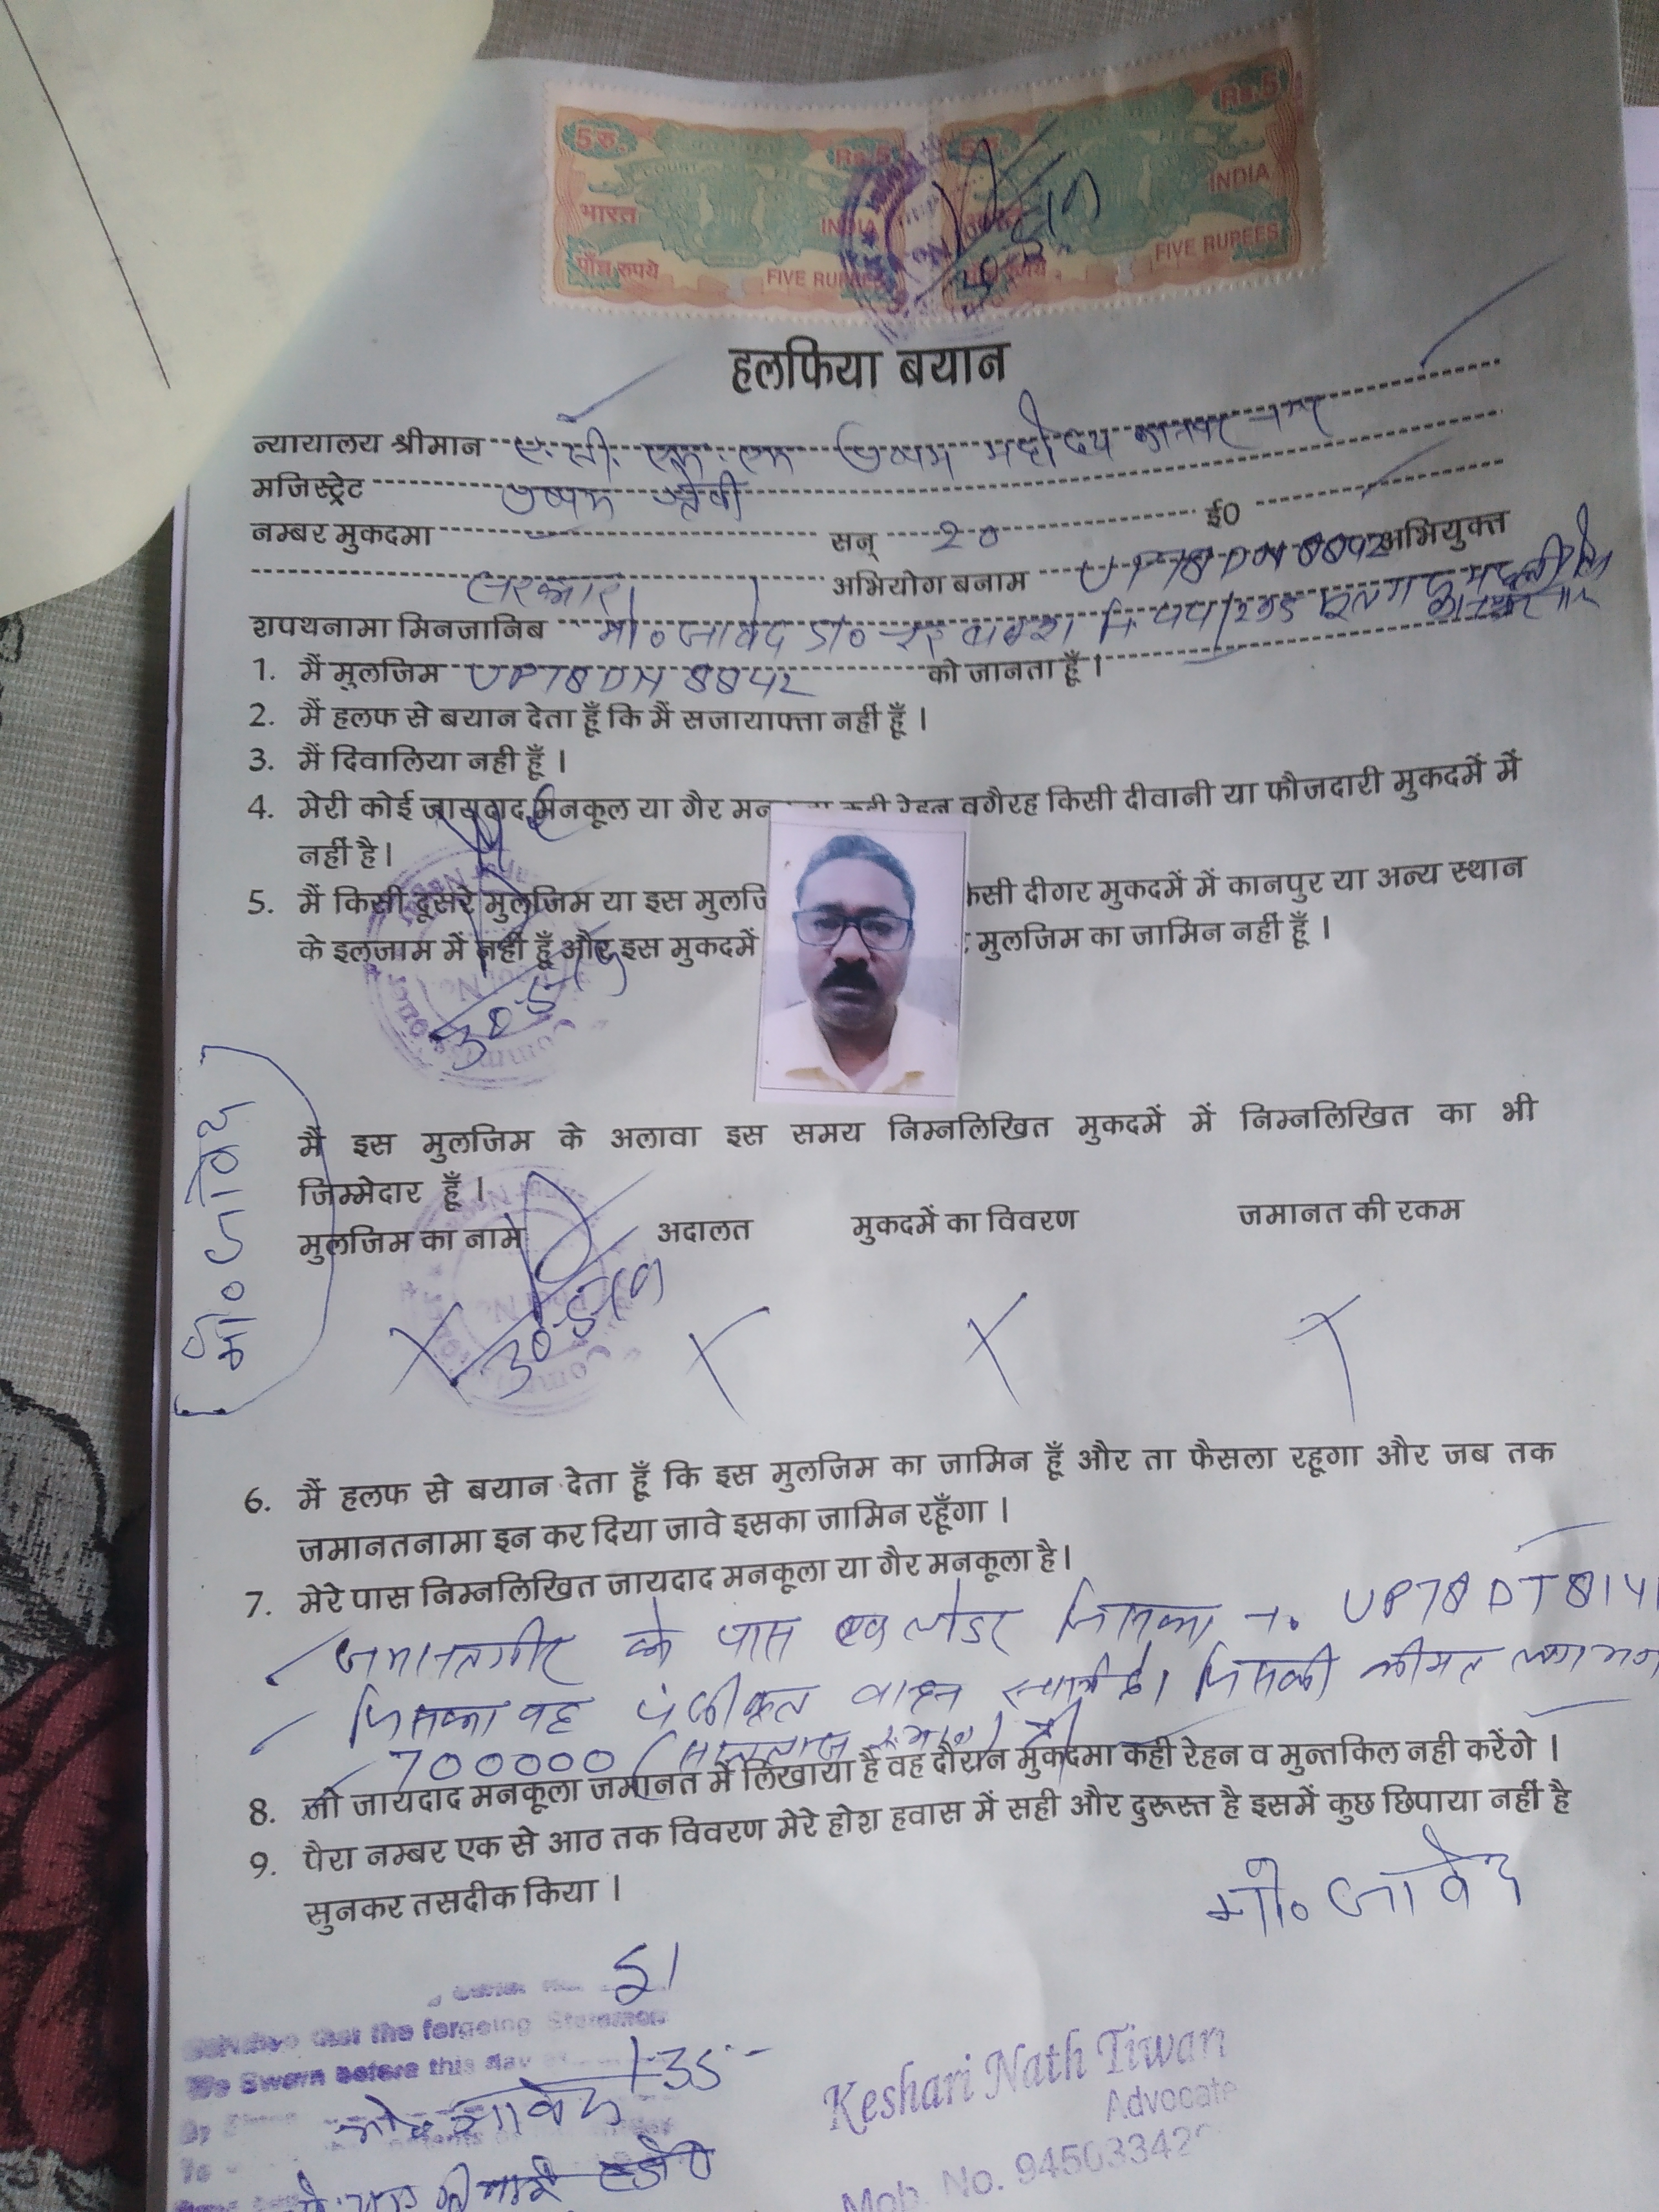 5 रु. Rs.5 Rs.5
भारत INDIA INDIA
पाँच रुपये FIVE RUPEES FIVE RUPEES
हलफिया बयान
न्यायालय श्रीमान महोदय कानपुर नगर
मजिस्ट्रेट
नम्बर मुकदमा सन् 20 ई0
सरकार अभियोग बनाम UP78DN8842 अभियुक्त
शपथनामा मिनजानिब मो० जावेद
1. मैं मुलजिम UP78DN8842 को जानता हूँ ।
2. मैं हलफ से बयान देता हूँ कि मैं सजायाफ्ता नहीं हूँ ।
3. मैं दिवालिया नही हूँ ।
4. मेरी कोई जायदाद मनकूल या गैर रेहन वगैरह किसी दीवानी या फौजदारी मुकदमें में
नहीं है।
5. मैं किसी दूसरे मुलजिम या इस दीगर मुकदमें में कानपुर या अन्य स्थान
के इलजाम में नहीं हूँ और इस मुकदमें मुलजिम का जामिन नहीं हूँ ।
मो० जावेद
मैं इस मुलजिम के अलावा इस समय निम्नलिखित मुकदमें में निम्नलिखित का भी
जिम्मेदार हूँ ।
मुलजिम का नाम अदालत मुकदमें का विवरण जमानत की रकम
X X X X
6. मैं हलफ से बयान देता हूँ कि इस मुलजिम का जामिन हूँ और ता फैसला रहूगा और जब तक
जमानतनामा इन कर दिया जावे इसका जामिन रहूँगा ।
7. मेरे पास निम्नलिखित जायदाद मनकूला या गैर मनकूला है।
जमानतगीर के पास एक लोडर जिसका न. UP78DT8141
जिसका वह पंजीकृत वाहन स्वामी है। जिसकी कीमत लगभग
700000
8. जो जायदाद मनकूला जमानत में लिखाया है वह दौरान मुकदमा कही रेहन व मुन्तकिल नही करेंगे ।
9. पैरा नम्बर एक से आठ तक विवरण मेरे होश हवास में सही और दुरूस्त है इसमें कुछ छिपाया नहीं है
सुनकर तसदीक किया ।
मो० जावेद
that the forgoing
Sworn before this day
मो० जावेद
Keshari Nath Tiwari
Advocate
Mob. No. 94503342